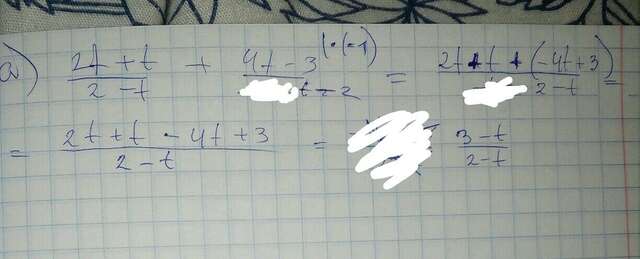 a) (2t + t)/(2 - t) + (4t - 3)/(t - 2) |·(-1) = (2t + t + (-4t + 3))/(2 - t) =
= (2t + t - 4t + 3)/(2 - t) = (3 - t)/(2 - t)